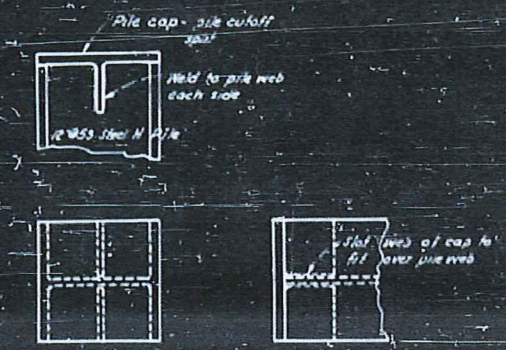 Pile cap - pile cutoff
split
Weld to pile web
each side
12"@53 Steel H Pile
Slot web of cap to
fit over pile web